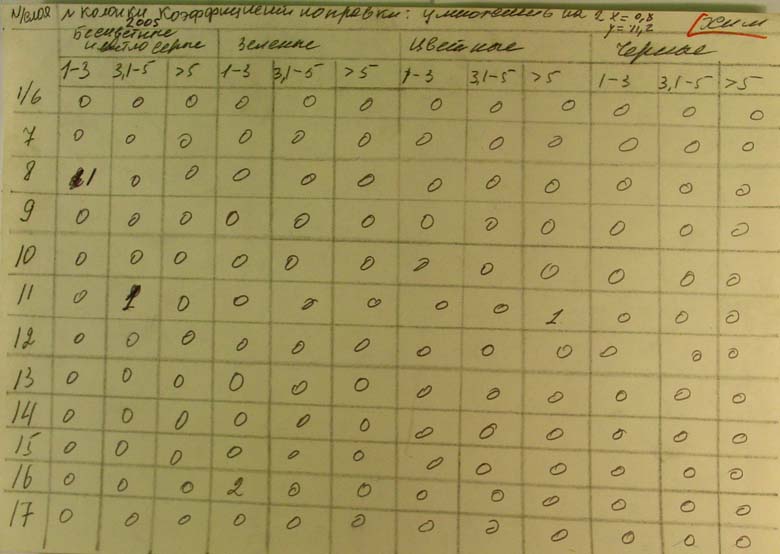 N/слоя N колонки Коэффициент поправки: умножить на 2 x = 0,8 Хим
2005 y = 11,2
Бесцветные Зеленые Цветные Черные
и светло серые
1-3 3,1-5 >5 1-3 3,1-5 >5 1-3 3,1-5 >5 1-3 3,1-5 >5
1/6 0 0 0 0 0 0 0 0 0 0 0 0
7 0 0 0 0 0 0 0 0 0 0 0 0
8 1 0 0 0 0 0 0 0 0 0 0 0
9 0 0 0 0 0 0 0 0 0 0 0 0
10 0 0 0 0 0 0 0 0 0 0 0 0
11 0 1 0 0 0 0 0 0 1 0 0 0
12 0 0 0 0 0 0 0 0 0 0 0 0
13 0 0 0 0 0 0 0 0 0 0 0 0
14 0 0 0 0 0 0 0 0 0 0 0 0
15 0 0 0 0 0 0 0 0 0 0 0 0
16 0 0 0 2 0 0 0 0 0 0 0 0
17 0 0 0 0 0 0 0 0 0 0 0 0